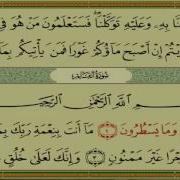 ءَامَنَّا بِهِۦ وَعَلَيْهِ تَوَكَّلْنَا ۖ فَسَتَعْلَمُونَ مَنْ هُوَ فِى
إِنْ أَصْبَحَ مَآؤُكُمْ غَوْرًا فَمَن يَأْتِيكُم بِمَآءٍ
سُورَةُ الْقَلَمِ
بِسْمِ ٱللَّهِ ٱلرَّحْمَٰنِ ٱلرَّحِيمِ
وَمَا يَسْطُرُونَ ١ مَآ أَنتَ بِنِعْمَةِ رَبِّكَ
غَيْرَ مَمْنُونٍ ٣ وَإِنَّكَ لَعَلَىٰ خُلُقٍ